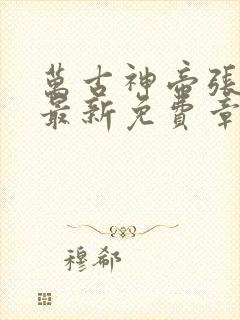 萬古神帝張
最新免費章
穆郗